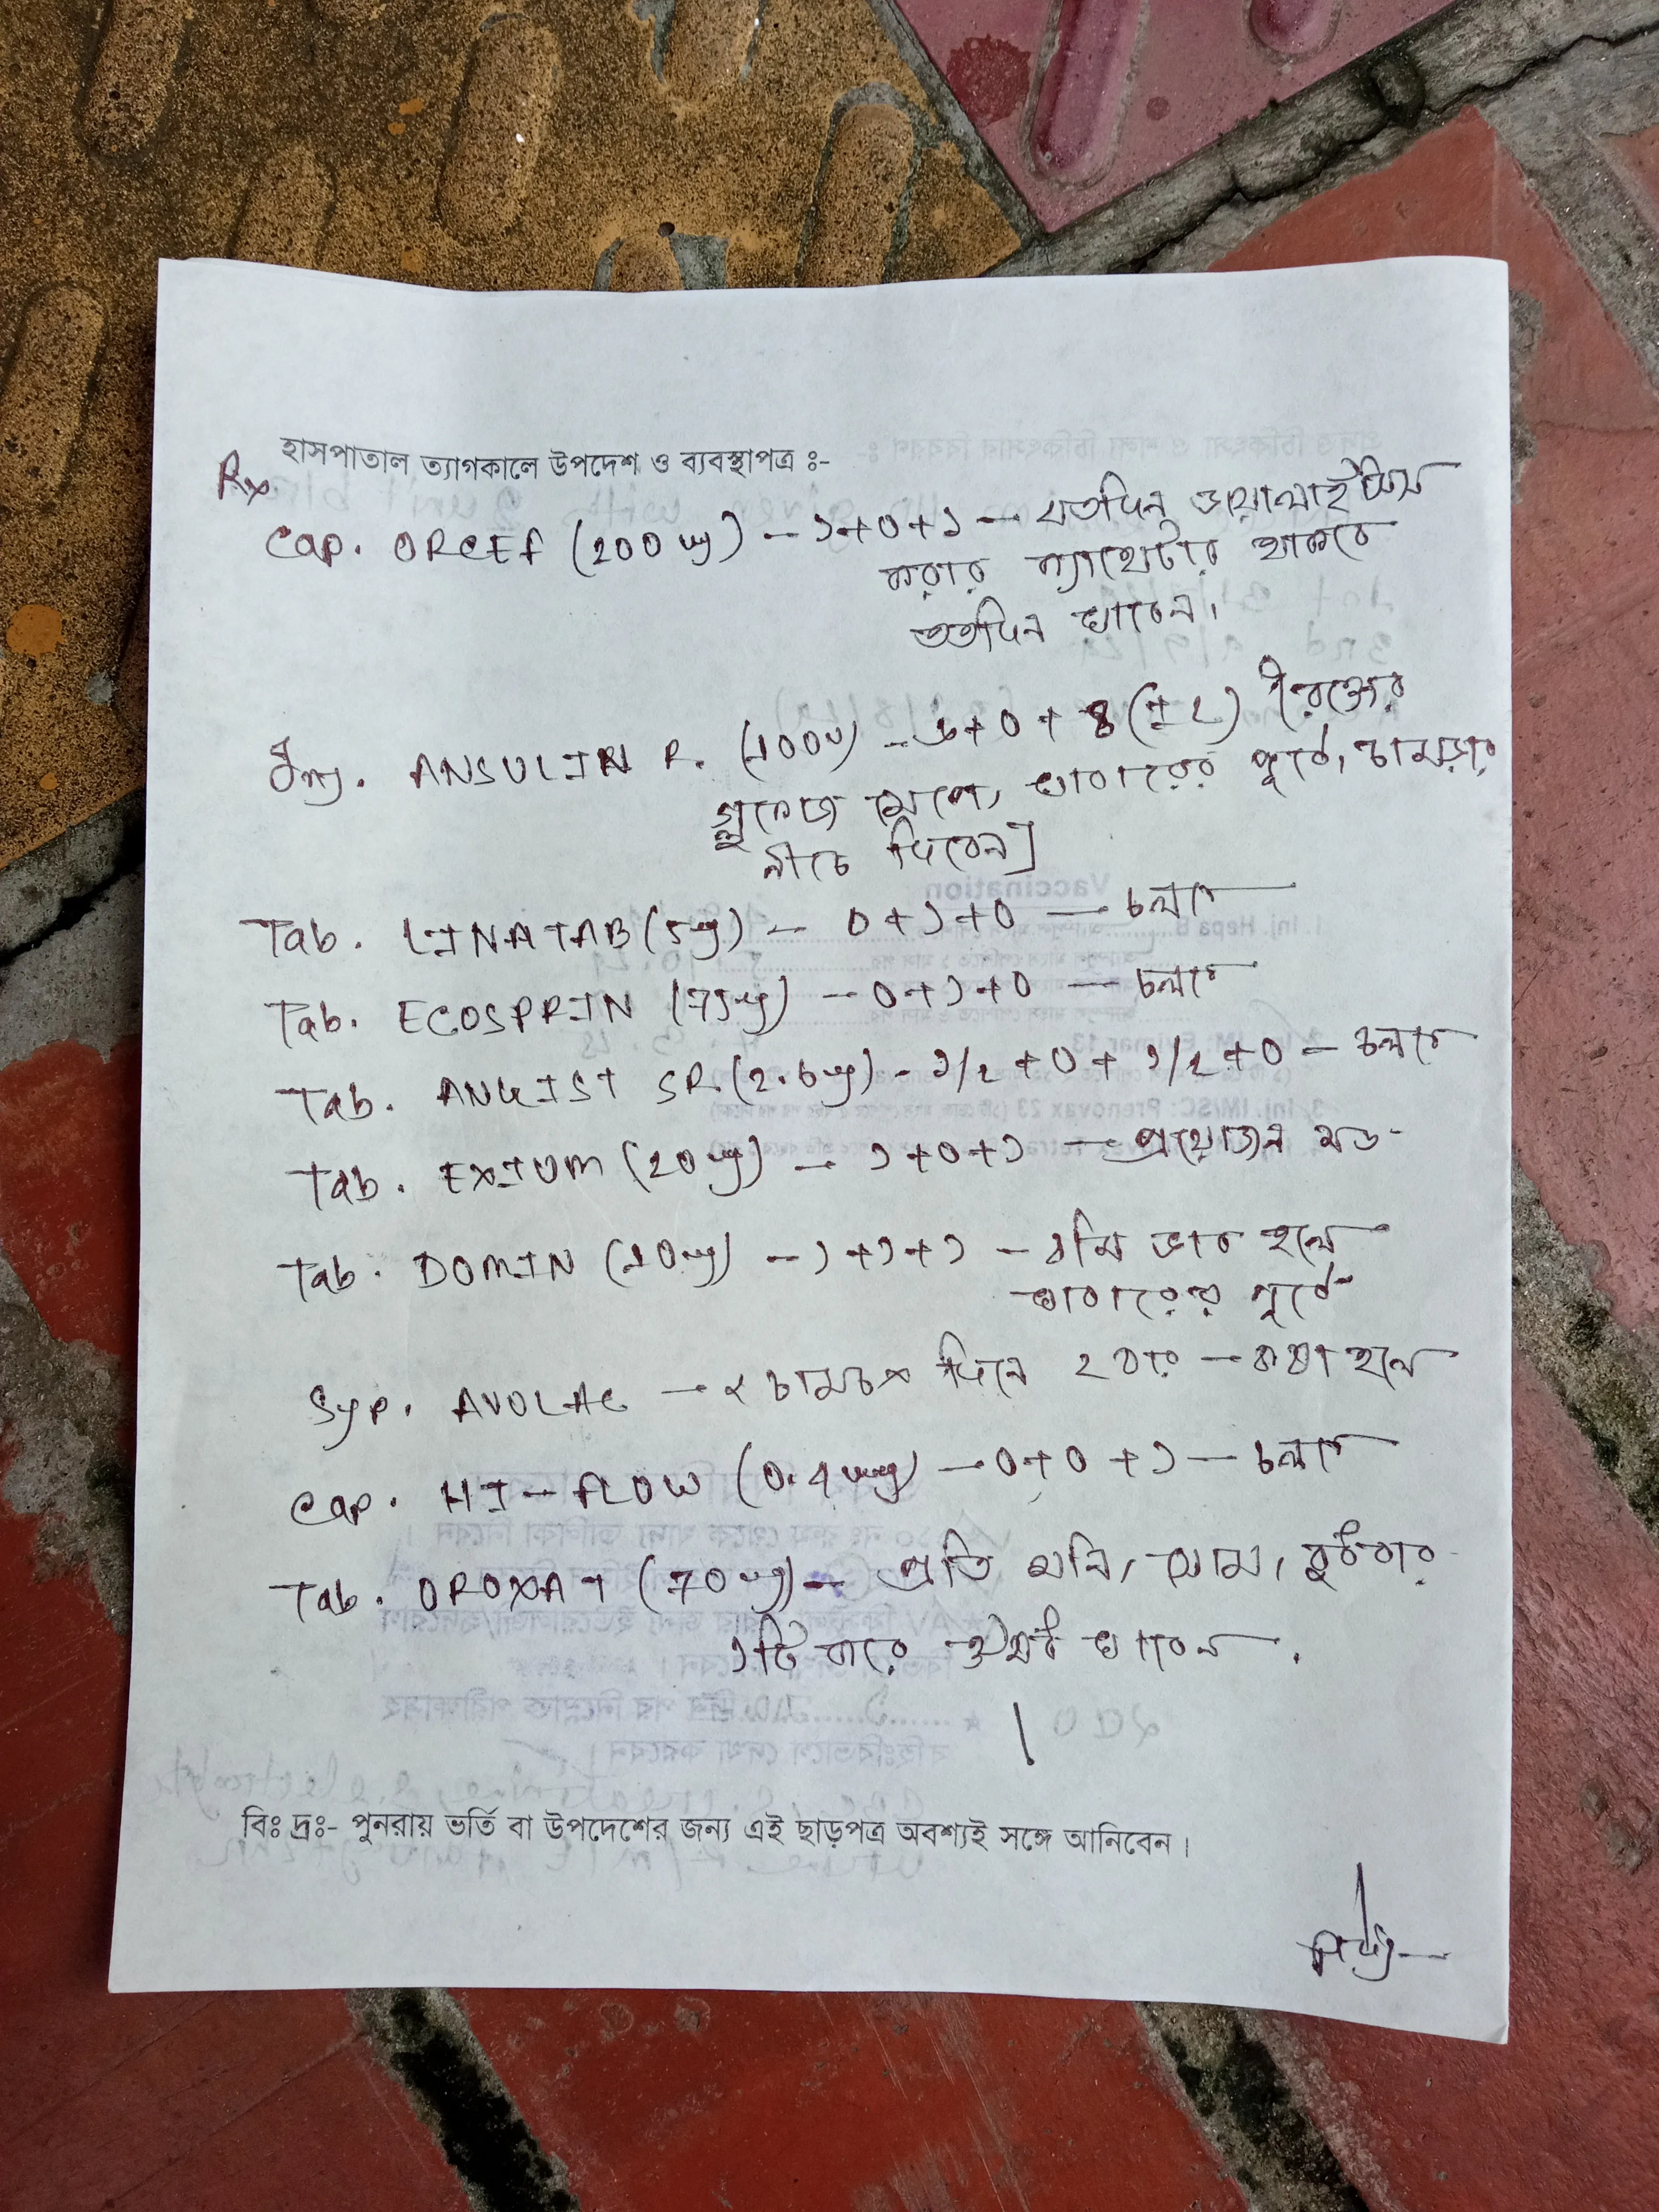 হাসপাতাল ত্যাগকালে উপদেশ ও ব্যবস্থাপত্র ঃ-
Rx
Cap. ORCEF (200 mg) – ১+০+১ — যতদিন ডায়ালাইসিস
করার ক্যাথেটার থাকবে
ততদিন খাবেন।
Inj. ANSULIN R. (100 u) – + 0 + (± ২) [রক্তের
গ্লুকোজ মেপে, খাবারের পূর্বে, চামড়ার
নীচে দিবেন]
Tab. LINATAB (5 mg) – ০+১+০ — চলবে
Tab. ECOSPRIN (75 mg) – ০+১+০ — চলবে
Tab. ANGIST SR. (2.6 mg) – ১/২+০+১/২+০ – চলবে
Tab. EXIUM (20 mg) – ১+০+১ — প্রয়োজন মত
Tab. DOMIN (10 mg) – ১+১+১ – বমি ভাব হলে
খাবারের পূর্বে
Syp. AVOLAC – ২ চামচ দিনে ২ বার – কষা হলে
Cap. HI-FLOW (0.4 mg) – ০+০+১ – চলবে
Tab. OROXAT (70 mg) – প্রতি শনি, সোম, বুধবার
১টি করে খাবেন.
বিঃ দ্রঃ- পুনরায় ভর্তি বা উপদেশের জন্য এই ছাড়পত্র অবশ্যই সঙ্গে আনিবেন।